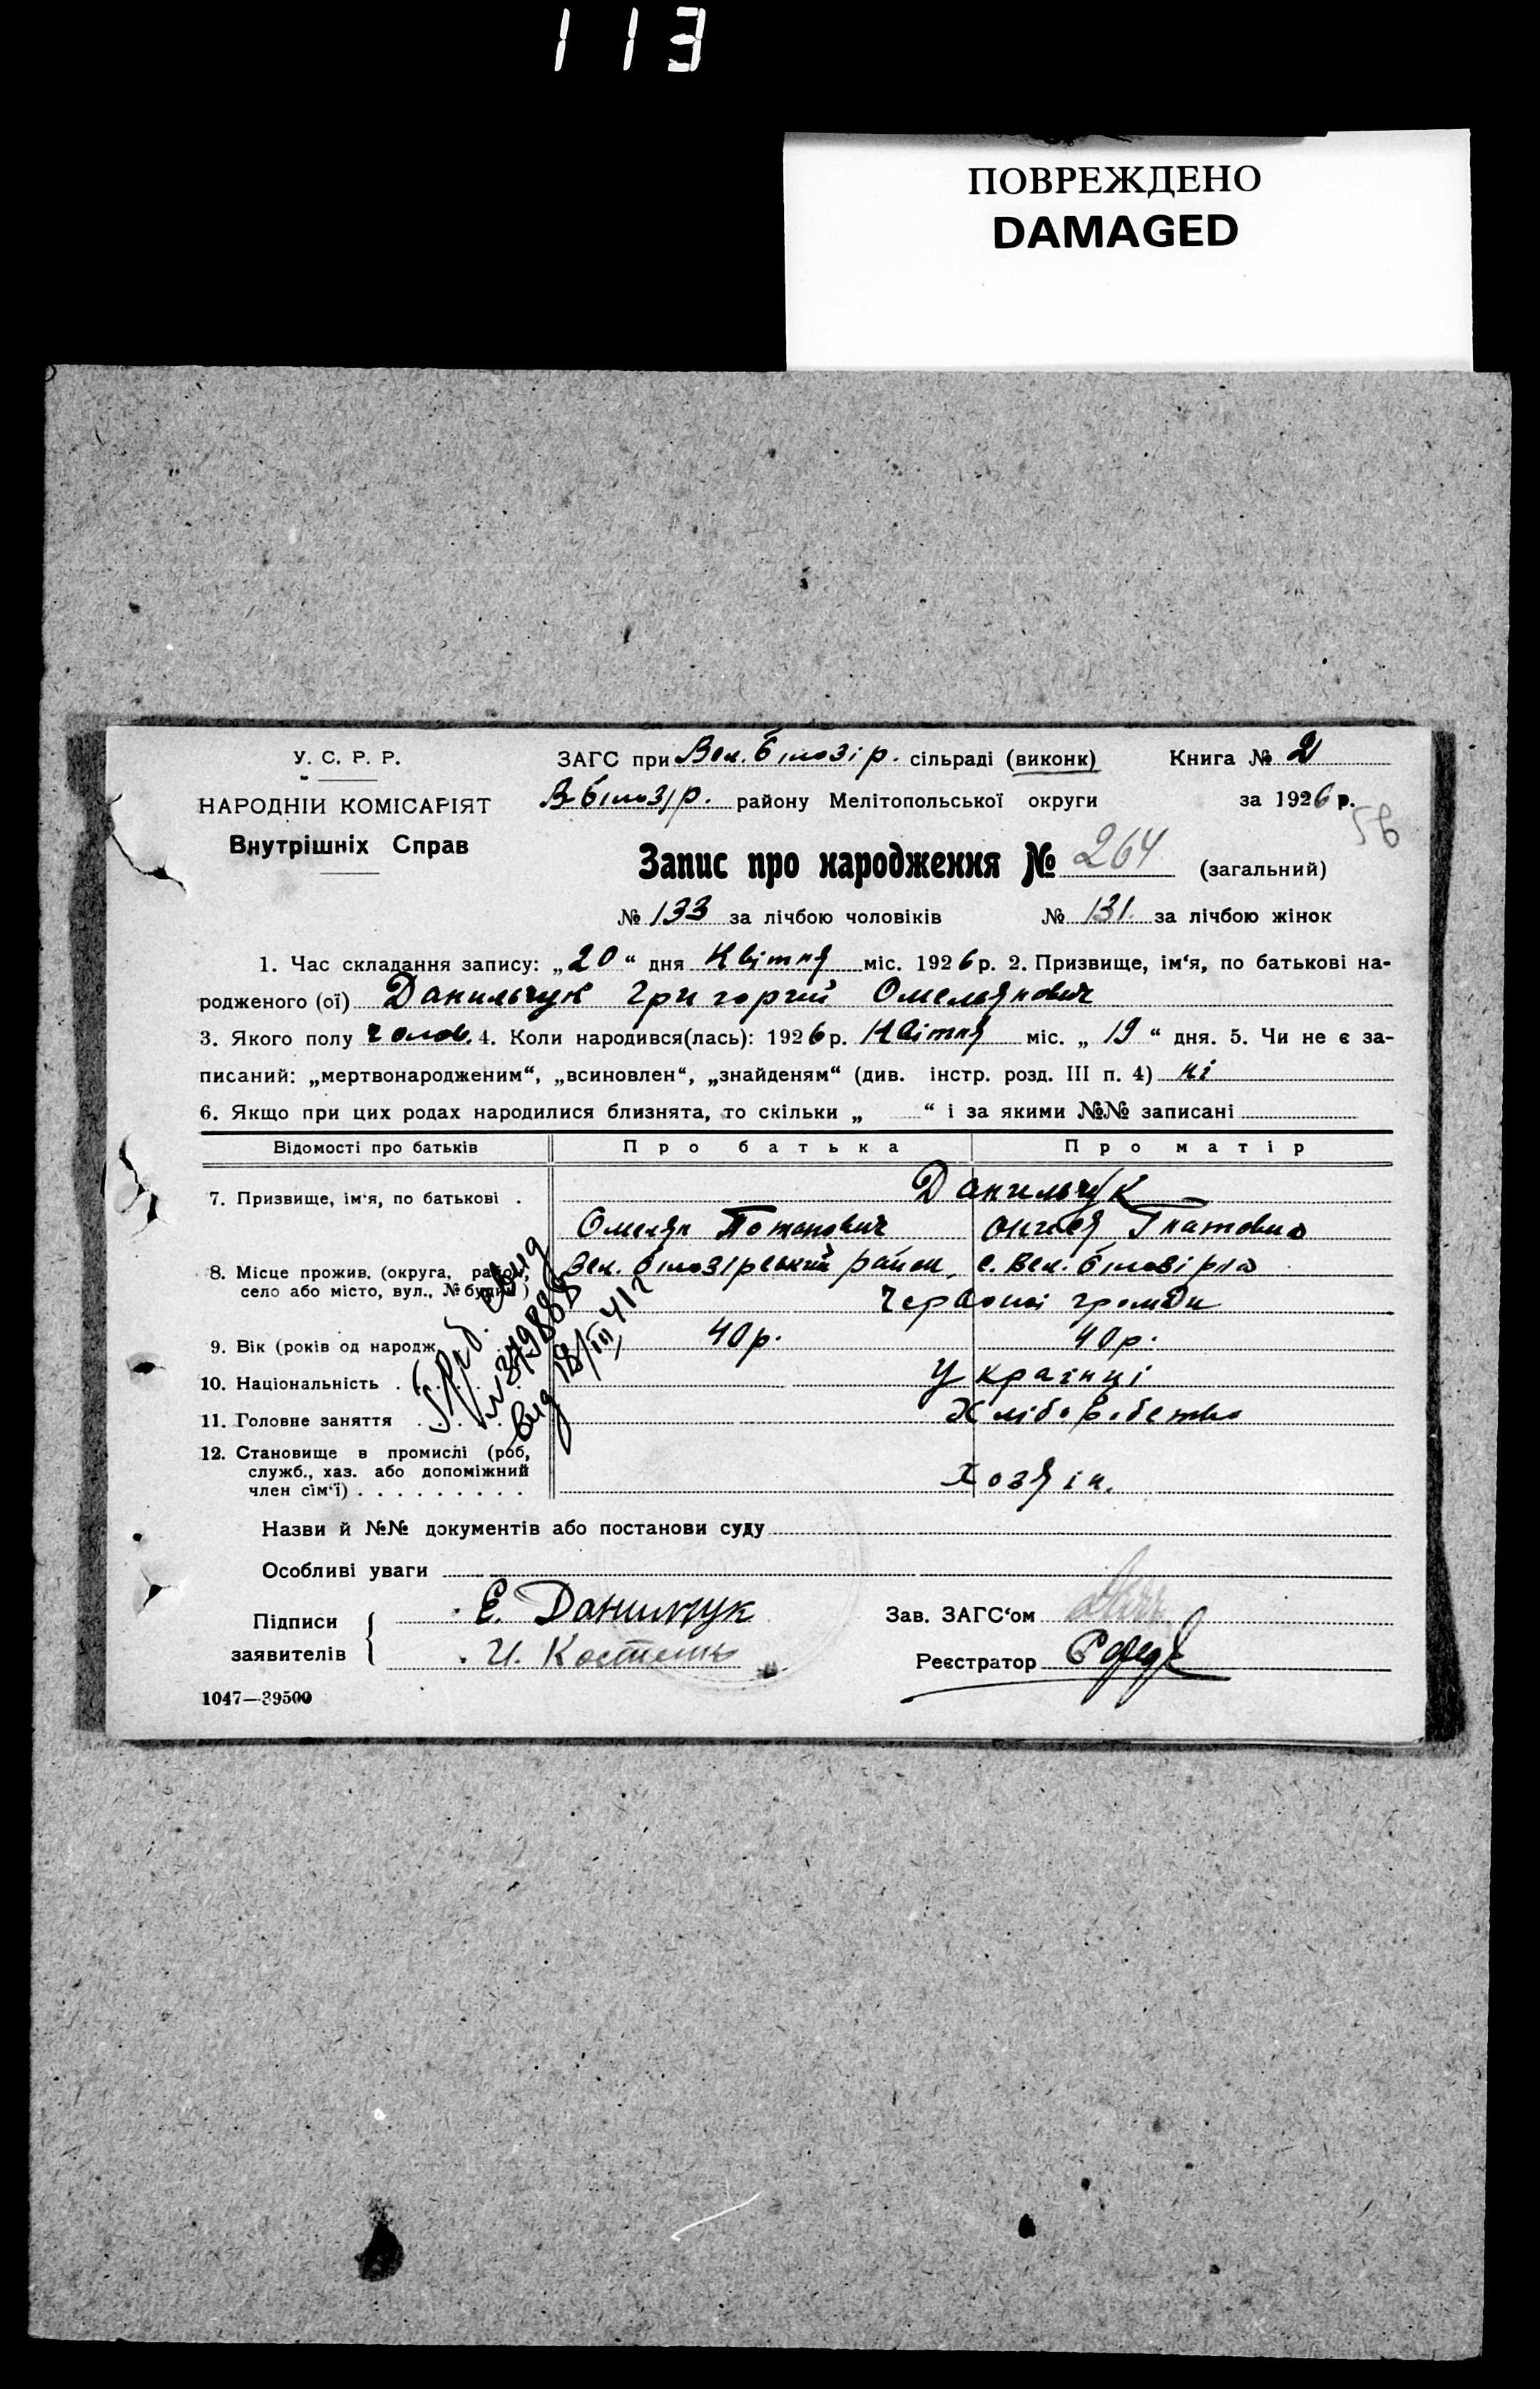 113
ПОВРЕЖДЕНО
DAMAGED
У. С. Р. Р.
НАРОДНІЙ КОМІСАРІЯТ
Внутрішніх Справ
ЗАГС при Вел. Білозір. сільраді (виконк)
Книга № 2
В-Білозір. району Мелітопольської округи
за 1926 р.
56
Запис про народження № 264 (загальний)
№ 133 за лічбою чоловіків № 131 за лічбою жінок
1. Час складання запису: „20“ дня Квітня міс. 1926 р. 2. Призвище, ім‘я, по батькові на-
родженого (ої) Данильчук Григорий Омельянович
3. Якого полу чолов. 4. Коли народився(лась): 1926 р. Квітня міс. „ 19 “ дня. 5. Чи не є за-
писаний: „мертвонародженим“, „всиновлен“, „знайденям“ (див. інстр. розд. III п. 4) ні
6. Якщо при цих родах народилися близнята, то скільки „ “ і за якими №№ записані
Відомості про батьків Про батька Про матір
7. Призвище, ім‘я, по батькові . Данильчук
Омелян Потапович Гнатовна
8. Місце прожив. (округа, район, Вел. Білозірський район, с. Вел. Білозірка
село або місто, вул., № будин.) Червоної громади
9. Вік (років од народж. 40 р. 40 р.
10. Національність . Українці
11. Головне заняття . . Хліборобство
12. Становище в промислі (роб,
служб., хаз. або допоміжний
член сім‘ї) . . . . . . . . . Хозяін.
№ 379888
вид 18/III 41 г
Назви й №№ документів або постанови суду
Особливі уваги
Підписи
заявителів
Е. Данильчук
И. Костенко
Зав. ЗАГС‘ом
Реєстратор
1047—39500